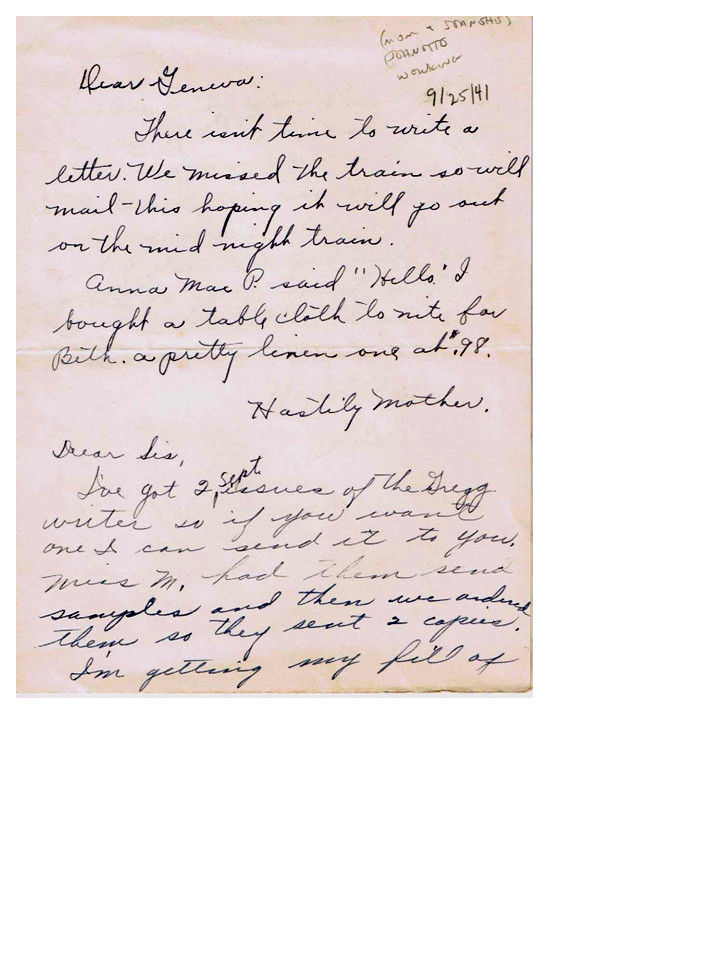 (mom +
WORKING
9/25/41
Dear Geneva:
There isn't time to write a
letter. We missed the train so will
mail this hoping it will go out
on the mid night train.
Anna Mae P. said "Hello." I
bought a table cloth to nite for
Beth. a pretty linen one at $.98.
Hastily Mother.
Dear Sis,
I've got 2 Sept. issues of the Gregg
writer so if you want
one I can send it to you.
Miss M. had them send
samples and then we ordered
them so they sent 2 copies.
I'm getting my fill of